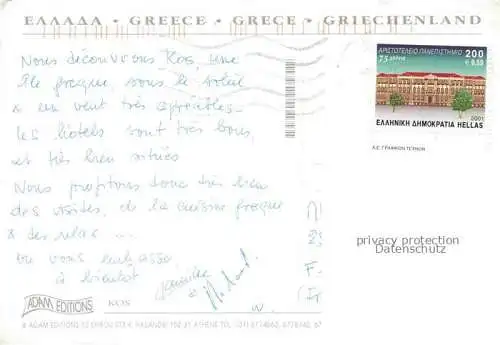 ΕΛΛΑΔΑ • GREECE • GRECE • GRIECHENLAND
Nous découvrons Kos, une
île grecque sous le soleil
& un vent très agréables -
les hôtels sont très bons,
et très bien situés
Nous profitons donc très bien
des visites, de la cuisine grecque
& des relax ...
On vous embrasse
à bientôt
ΑΡΙΣΤΟΤΕΛΕΙΟ ΠΑΝΕΠΙΣΤΗΜΙΟ
75 χρόνια
200
€ 0,59
2001
ΕΛΛΗΝΙΚΗ ΔΗΜΟΚΡΑΤΙΑ HELLAS
Α.Ε. ΓΡΑΦΙΚΩΝ ΤΕΧΝΩΝ
privacy protection
Datenschutz
F-
ADAM EDITIONS
KOS
© ADAM EDITIONS
HALANDRI 152 31 ATHENS TEL.